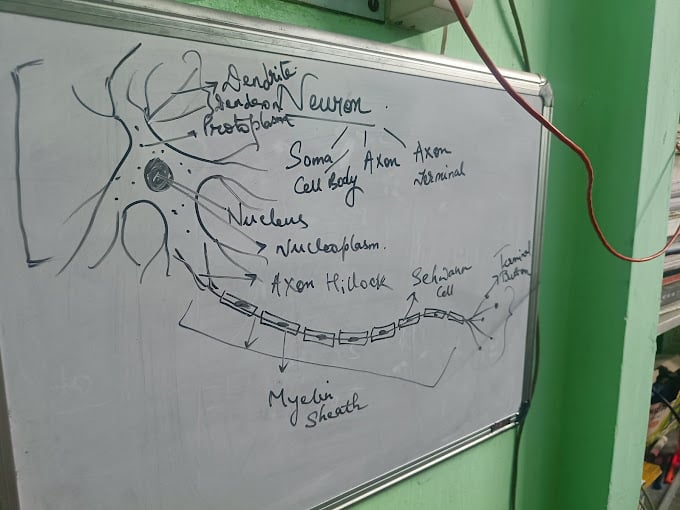 Dendrite
Dendron
Protoplasm
Neuron
Soma
Cell Body
Axon
Axon
Terminal
Nucleus
Nucleoplasm.
Axon Hillock
Schwann
Cell
Terminal
Button
Myelin
Sheath